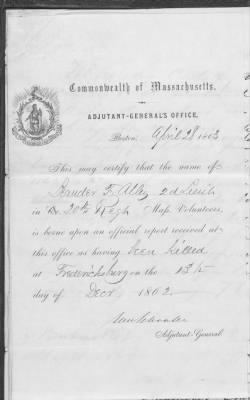 Commonwealth of Massachusetts.
ADJUTANT-GENERAL'S OFFICE,
Boston, April 28 1863
This may certify that the name of
Leander F. Alley 2d Lieut
in Co. 20th Regt Mass. Volunteers,
is borne upon an official report received at
this office as having been killed
at Fredericksburg on the 13th
day of Decr 1862.
Adjutant-General.